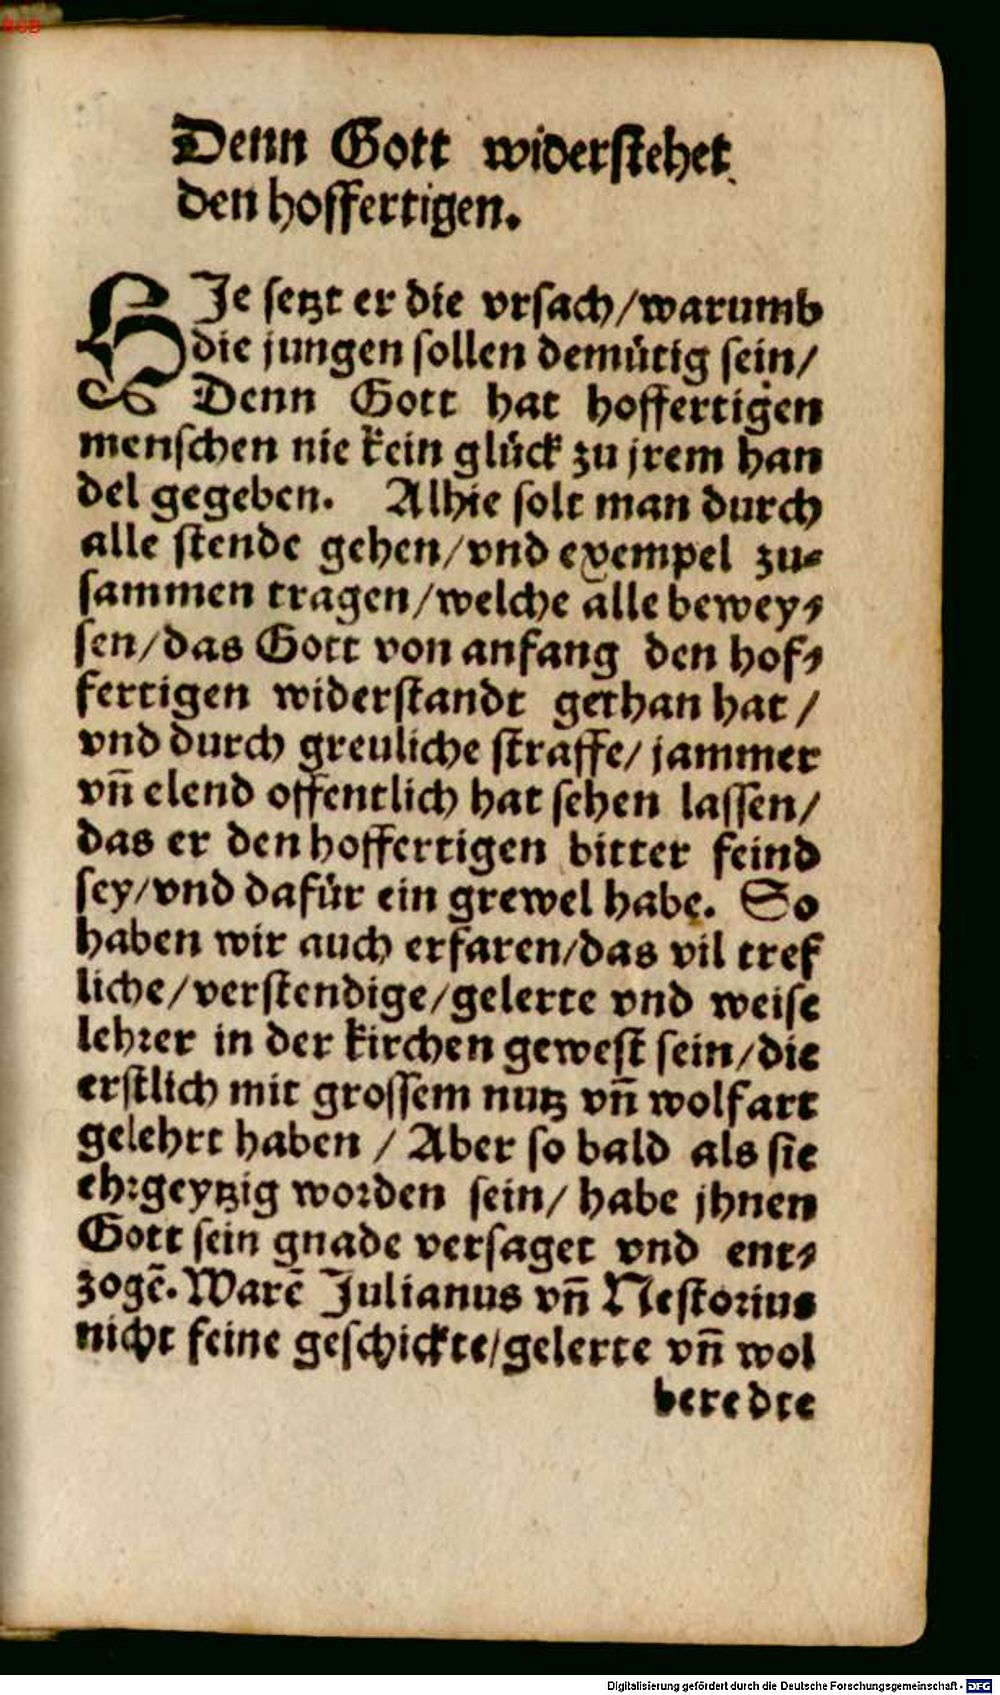 Denn Gott widerstehet
den hoffertigen.
HIe setzt er die vrsach/warumb
die jungen sollen demütig sein/
Denn Gott hat hoffertigen
menschen nie kein glück zu jrem han
del gegeben. Alhie solt man durch
alle stende gehen/vnd exempel zu⸗
sammen tragen/welche alle bewey⸗
sen/das Gott von anfang den hof⸗
fertigen widerstandt gethan hat/
vnd durch greuliche straffe/jammer
vn̄ elend offentlich hat sehen lassen/
das er den hoffertigen bitter feind
sey/vnd dafür ein grewel habe. So
haben wir auch erfaren/das vil tref
liche/verstendige/gelerte vnd weise
lehrer in der kirchen gewest sein/die
erstlich mit grossem nutz vn̄ wolfart
gelehrt haben / Aber so bald als sie
ehrgeytzig worden sein/ habe jhnen
Gott sein gnade versaget vnd ent⸗
zogē. Warē Julianus vn̄ Nestorius
nicht feine geschickte/gelerte vn̄ wol
beredte
BSB
Digitalisierung gefördert durch die Deutsche Forschungsgemeinschaft - DFG